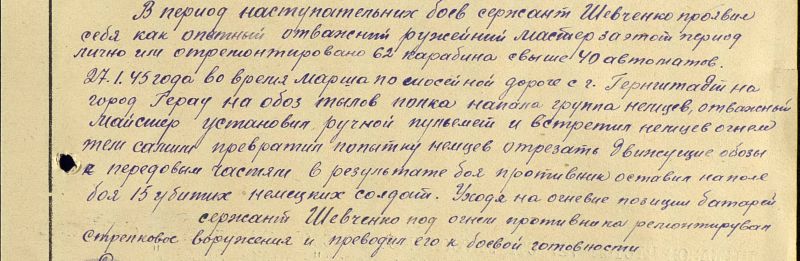 В период наступательних боев сержант Шевченко проявил
себя как опитный отважний ружейний мастер за этот период
лично им отремонтировано 62 карабина свыше 40 автоматов.
27.1.45 года во время марша по шосейной дороге с г. Гернштадт на
город Герау на обоз тылов полка напала группа немцев, отважный
майстер установил ручной пулемет и встретил немцев огнем
тем самим превратил попытку немцев отрезать движущие обозы
к передовым частям в результате боя противник оставил на поле
боя 15 убитих немецких солдат. Уходя на огневие позиции батарей
сержант Шевченко под огнем противника ремонтирувал
стрелковое воружения и преводил его к боевой готовности